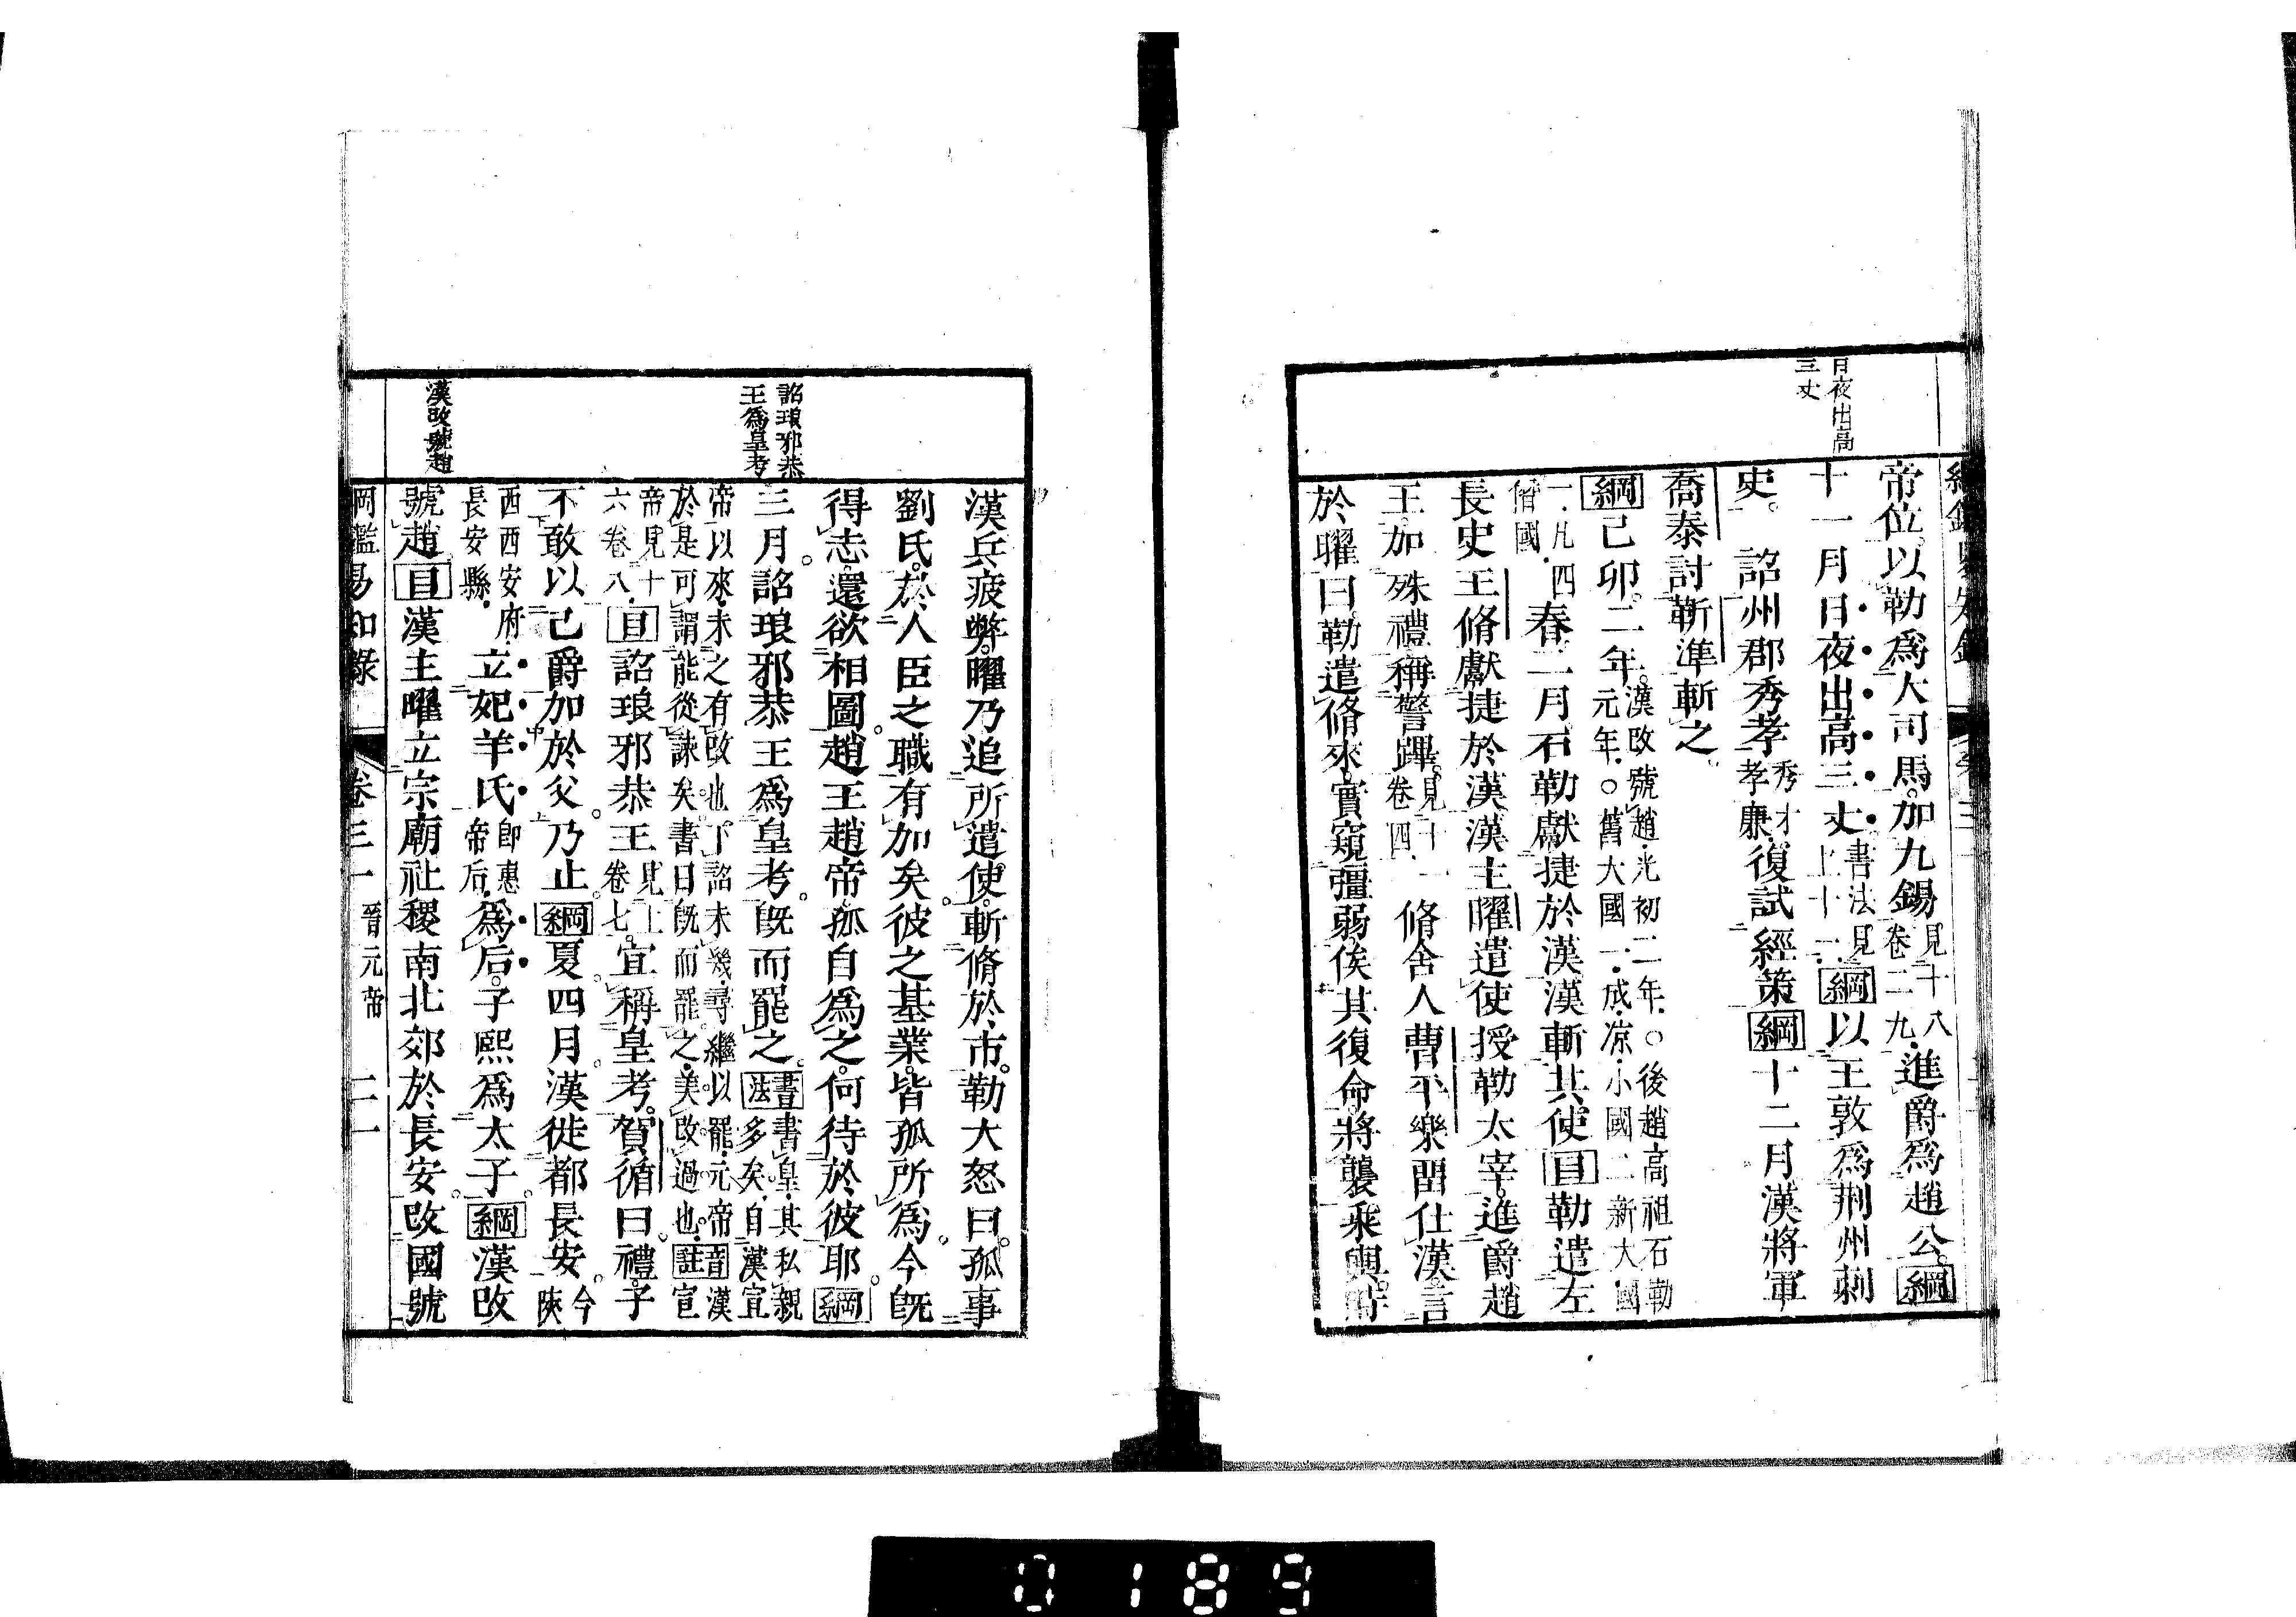 日夜出高
三丈
帝位以勒爲大司馬加九錫見十八卷二九進爵爲趙公綱
十一月日夜出高三丈書法見上十二綱以王敦爲荆州刺
史詔州郡秀孝秀才孝廉復試經策綱十二月漢將軍
喬泰討靳準斬之
綱己卯二年漢改號趙光初二年○後趙高祖石勒元年○舊大國一成凉小國二新大國
一凡四僭國春二月石勒獻捷於漢漢斬其使目勒遣左
長史王脩獻捷於漢漢主曜遣使授勒太宰進爵趙
王加殊禮稱警蹕見十一卷四脩舍人曹平樂留仕漢言
於曜曰勒遣脩來實窺彊弱俟其復命將襲乘輿時
詔琅邪恭
王爲皇考
漢改號趙
漢兵疲弊曜乃追所遣使斬脩於市勒大怒曰孤事
劉氏於人臣之職有加矣彼之基業皆孤所爲今旣
得志還欲相圖趙王趙帝孤自爲之何待於彼耶綱
三月詔琅邪恭王爲皇考旣而罷之書法書皇其私親多矣自漢宣
帝以來未之有改也下詔未幾尋繼以罷元帝於是可謂能從諫矣書曰旣而罷之美改過也音註漢宣
帝見十六卷八目詔琅邪恭王見上卷七宜稱皇考賀循曰禮子
不敢以己爵加於父乃止綱夏四月漢徙都長安今陝
西西安府長安縣立妃羊氏卽惠帝后爲后子熙爲太子綱漢改
號趙目漢主曜立宗廟社稷南北郊於長安改國號
綱鑑易知錄 卷三一 晉元帝 二一
0189